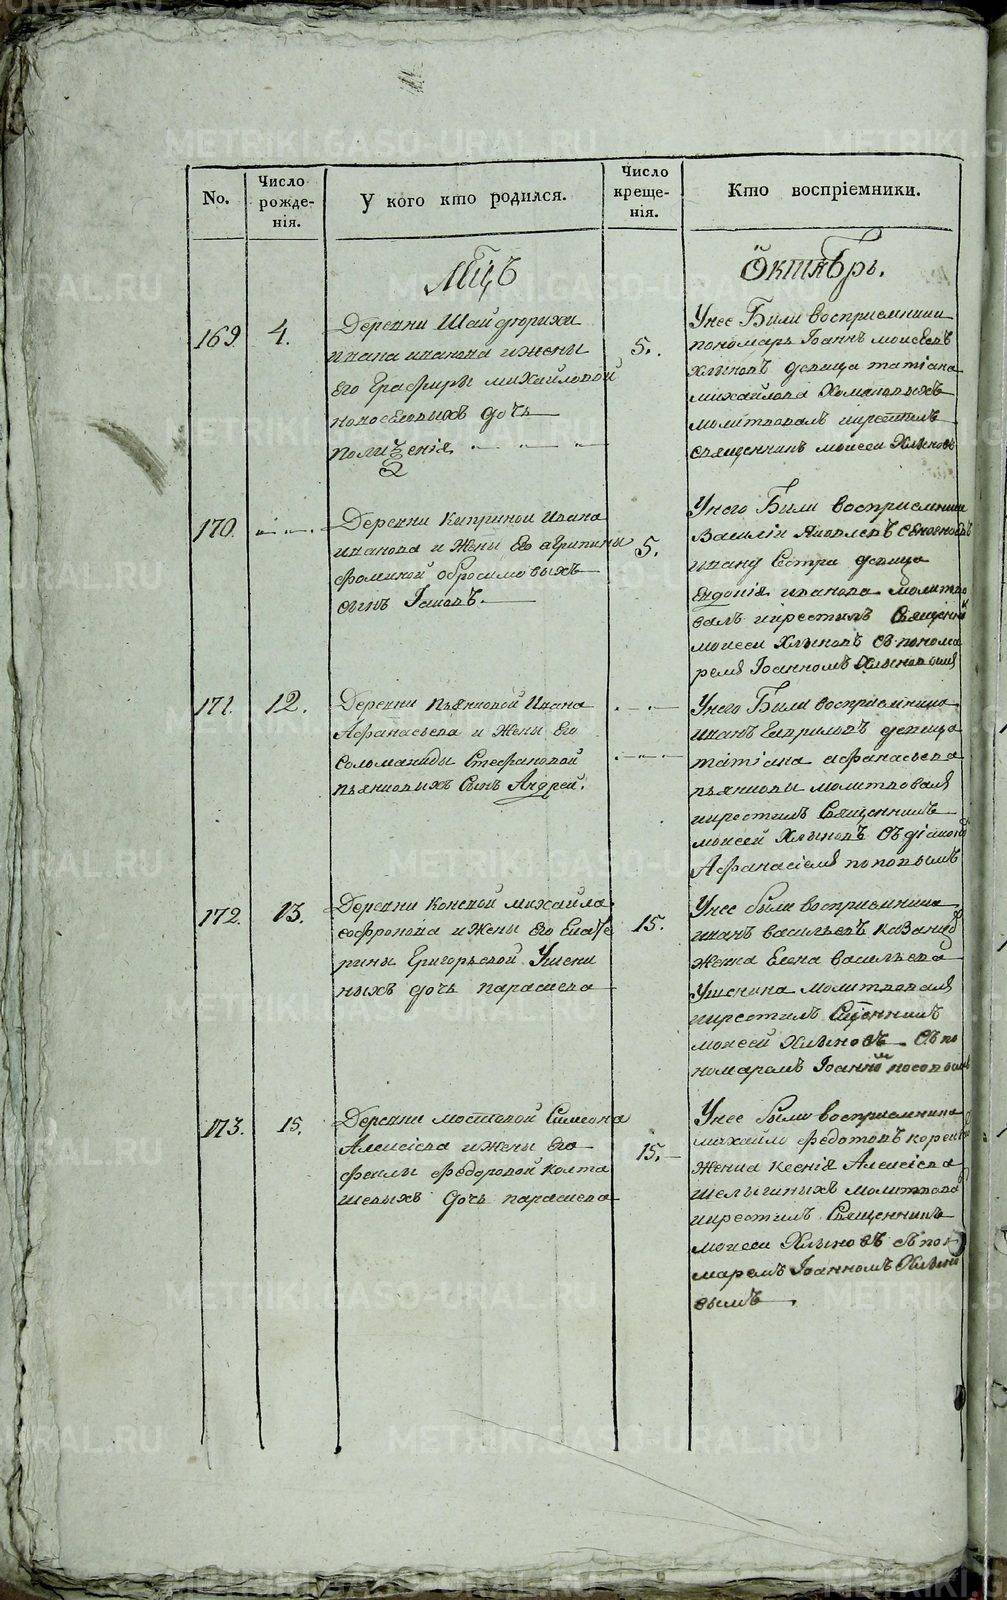 No.
Число рожде-нія.
У кого кто родился.
Число креще-нія.
Кто воспріемники.
Мцъ
Октябрь.
169.
4.
Деревни Шайдюрихи
ивана иванова ижены
Его Графиры михайловой
новоселовыхъ дочь
поликсенія
5.
Унее Были восприемники
пономарь Іоаннъ моисеевъ
Хлыновъ девица татіана
михайлова
молитвовалъ икрестилъ
священникъ моисеи Хлыновъ
170.
Деревни Киприной Ивана
иванова и Жены Его агрипины
фоминой обросимовыхъ
сынъ Іаковъ.
5.
Унего Были восприемники
Василіи Яковлевъ
ивану Сестра девица
Евдокія иванова молитво
валъ икрестилъ Священни
моисеи Хлыновъ съ понома
ремъ Іоанномъ Хлыновымъ
171.
12.
Деревни пьянковой Ивана
Афанасьева и Жены Его
Соломаниды Стефановой
пьянковыхъ Сынъ Андрей.
Унего Были восприемники
иванъ Гавриловъ девица
татіана афанасьева
пьянковы молитвовалъ
икрестилъ Священникъ
моисей Хлыновъ Съдіакономъ
Афанасіемъ поповымъ
172.
13.
Деревни Конской михайла
софронова и Жены Его Екате
рины Григорьевой Ушени
ныхъ дочь параскева
15.
Унее были восприемники
иванъ васильевъ
Жена Елена васильева
Ушенина молитвовалъ
икрестилъ Сщенникъ
моисей Хлыновъ Съ по
номаремъ Іоанномъ
173.
15.
Деревни мостовой Симеона
Алексіева ижены Его
феклы Федоровой Колта
шевыхъ Дочь параскева
15.
Унее были восприемники
михайло Федотовъ
Женка ксенія Алексіева
молитвова
икрестилъ Священникъ
моисеи Хлыновъ съ поно
маремъ Іоанномъ Хлыно
вымъ
METRIKI.GASO-URAL.RU